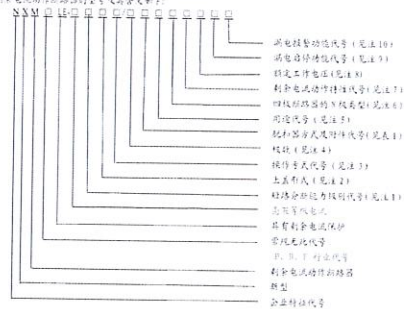 N X M □ LE-□ □ □/□ □ □ □ □ □ □ □
漏电报警功能代号(见注10)
漏电自停功能代号(见注9)
额定工作电压(见注8)
剩余电流动作特性代号(见注7)
四极断路器的N极类型(见注6)
用途代号(见注5)
脱扣器方式及附件代号(见表1)
极数(见注4)
操作方式代号(见注3)
上盖形式(见注2)
短路分断能力级别代号(见注1)
壳架等级电流
具有剩余电流保护
常规无此代号
P、B、T 行业代号
剩余电流动作断路器
新型
企业特征代号